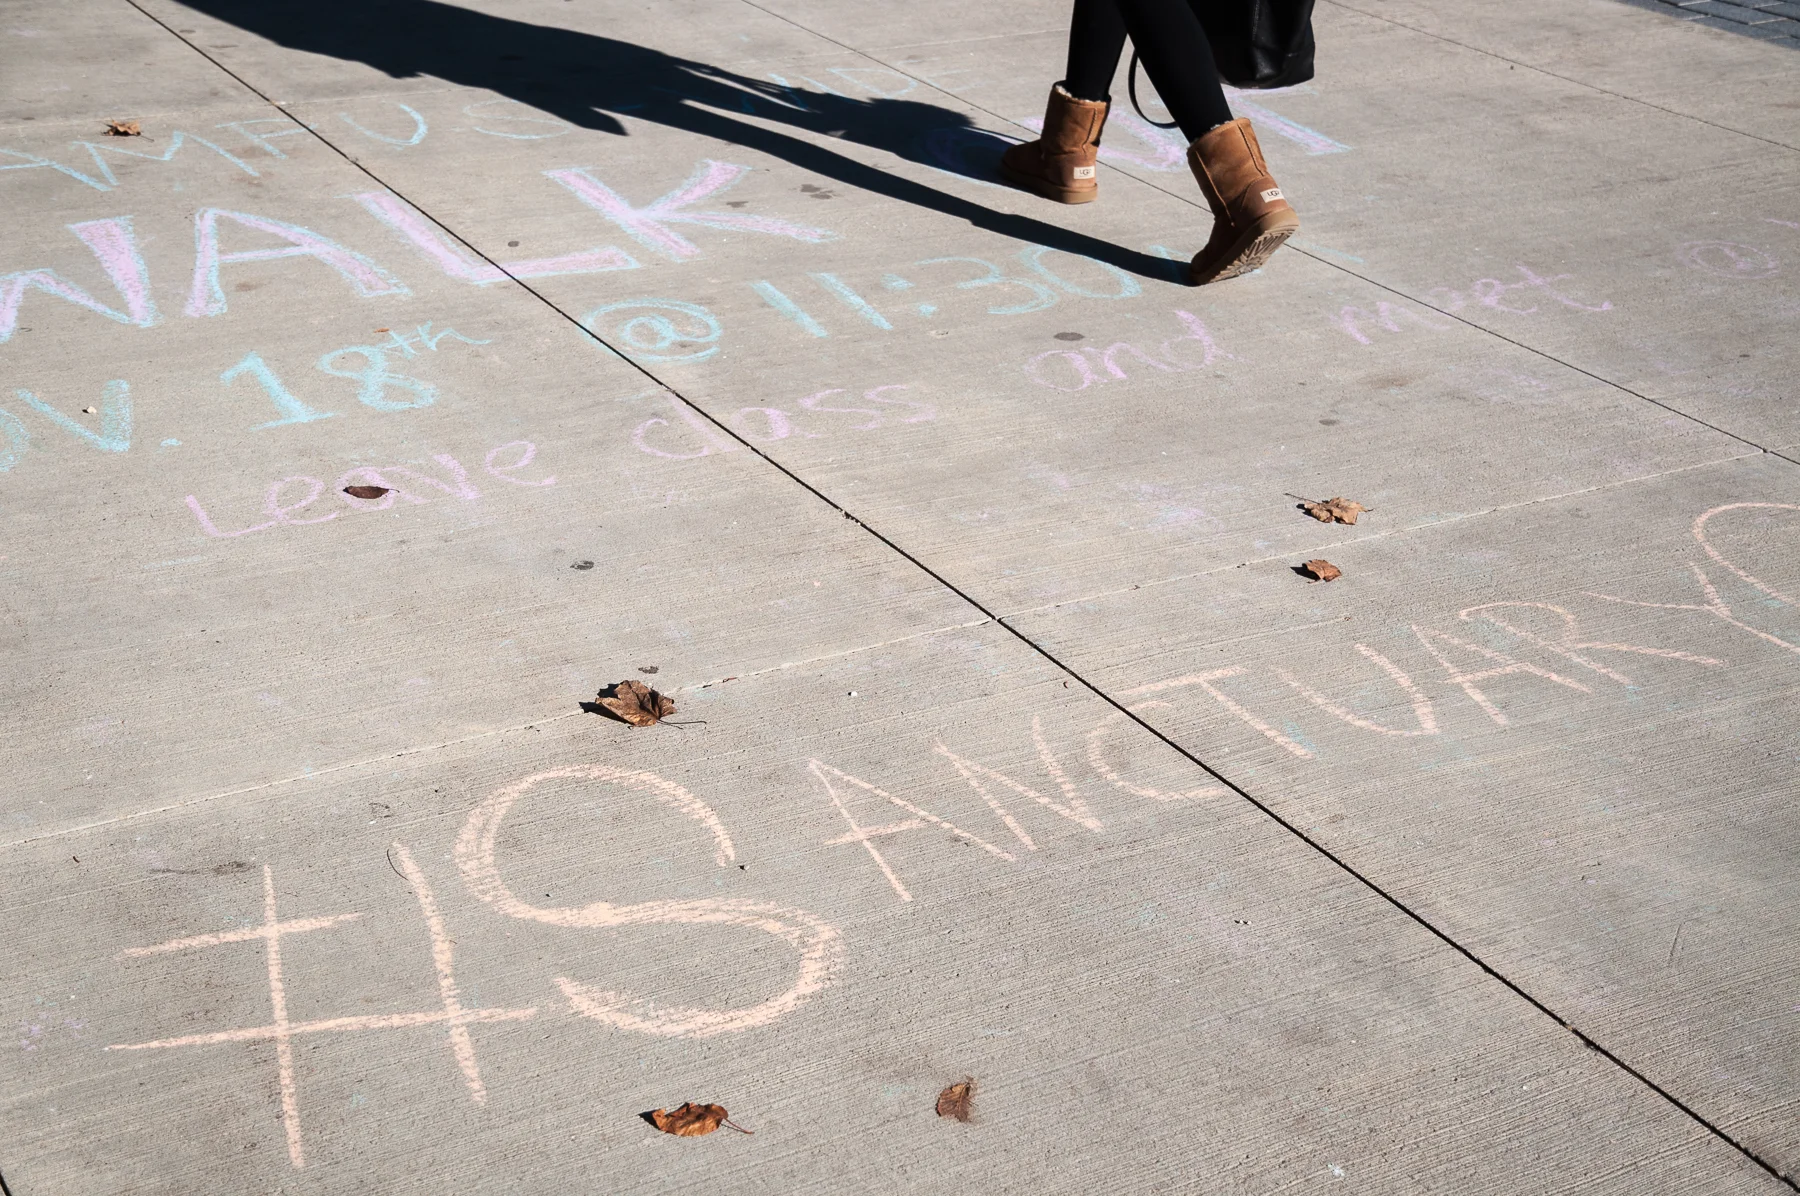 AMPUS WIDE
WALK OUT
OV. 18th @ 11:30
Leave class and meet @
#SANCTUARY
UGG
UGG